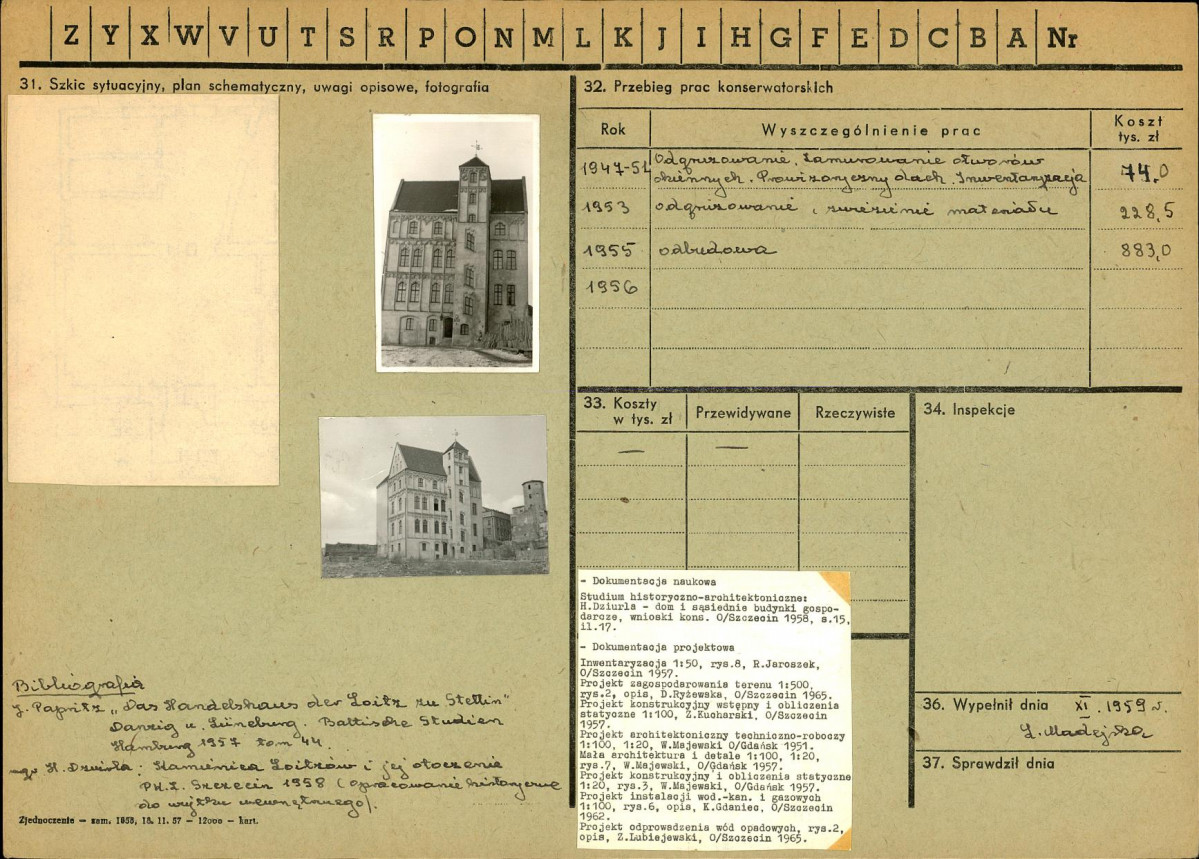 Z Y X W V U T S R P O N M L K J I H G F E D C B A Nr
31. Szkic sytuacyjny, plan schematyczny, uwagi opisowe, fotografia
Bibliografia
J. Papritz „Das Handelshaus der Loitz zu Stettin"
Danzig u. Lüneburg. Baltische Studien
Hamburg 1957 tom 44.
mgr H. Dziurla: Kamienica Loitzów i jej otoczenie
P.K.Z. Szczecin 1958 (opracowanie historyczne
do użytku wewnętrznego).
Zjednoczenie — zam. 1658, 18. 11. 57 — 12000 — kart.
32. Przebieg prac konserwatorskich
Rok Wyszczególnienie prac Koszt
tys. zł
1947-51 Odgruzowanie. Zamurowanie otworów
okiennych. Prowizoryczny dach. Inwentaryzacja 74,0
1953 odgruzowanie i zwiezienie materiału 228,5
1955 odbudowa 883,0
1956
33. Koszty
w tys. zł Przewidywane Rzeczywiste
— —
34. Inspekcje
- Dokumentacja naukowa
Studium historyczno-architektoniczne:
H.Dziurla - dom i sąsiednie budynki gospo-
darcze, wnioski kons. O/Szczecin 1958, s.15,
il.17.
- Dokumentacja projektowa
Inwentaryzacja 1:50, rys.8, R.Jaroszek,
O/Szczecin 1957.
Projekt zagospodarowania terenu 1:500,
rys.2, opis, D.Ryżewska, O/Szczecin 1965.
Projekt konstrukcyjny wstępny i obliczenia
statyczne 1:100, Z.Kucharski, O/Szczecin
1957.
Projekt architektoniczny techniczno-roboczy
1:100, 1:20, W.Majewski O/Gdańsk 1951.
Mała architektura i detale 1:100, 1:20,
rys.7, W.Majewski, O/Gdańsk 1957.
Projekt konstrukcyjny i obliczenia statyczne
1:20, rys.3, W.Majewski, O/Gdańsk 1957.
Projekt instalacji wod.-kan. i gazowych
1:100, rys.6, opis, K.Gdaniec, O/Szczecin
1962.
Projekt odprowadzenia wód opadowych, rys.2,
opis, Z.Lubiejewski, O/Szczecin 1965.
36. Wypełnił dnia XI. 1959 r.
Ł. Madejska
37. Sprawdził dnia